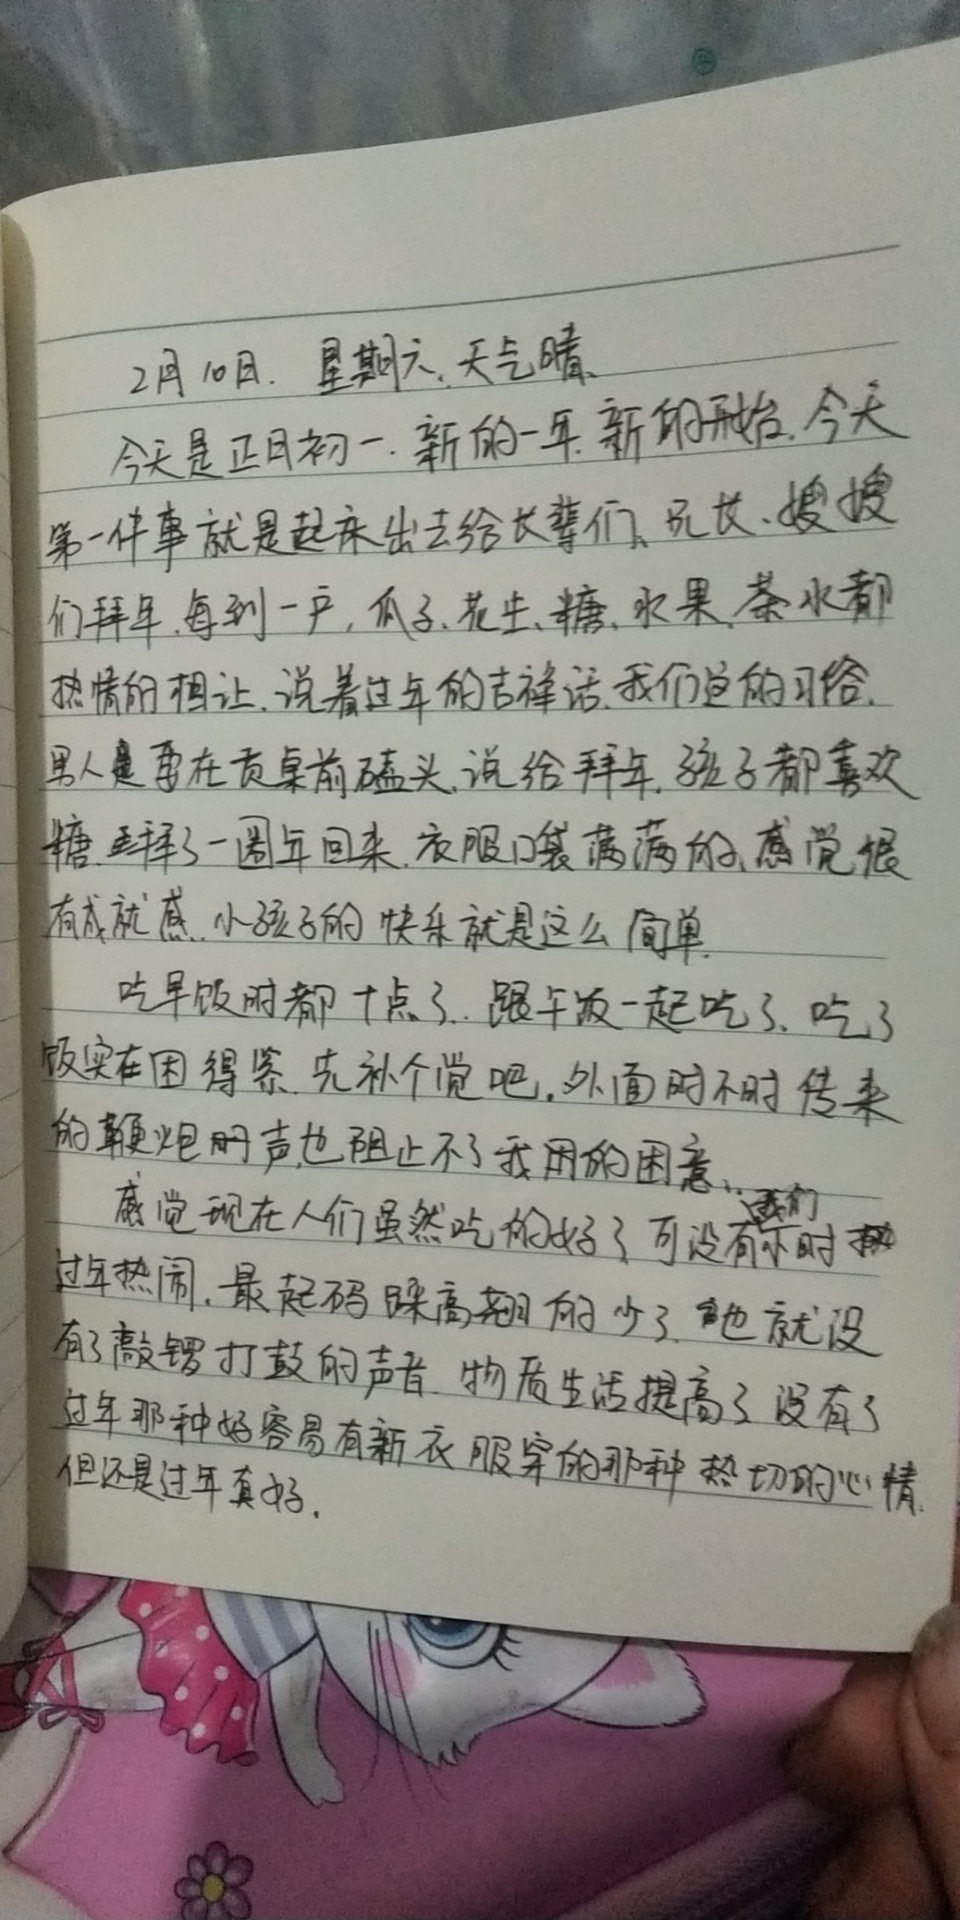 2月10日. 星期六、天气晴、
今天是正月初一.新的一年.新的开始.今天
第一件事就是起床出去给长辈们、兄长、嫂嫂
们拜年.每到一户,瓜子、花生、糖、水果、茶水都
热情的相让.说着过年的吉祥话.我们这的习俗.
男人是要在贡桌前磕头.说给拜年.孩子都喜欢
糖.拜了一圈年回来.衣服口袋满满的、感觉很
有成就感.小孩子的快乐就是这么简单.
吃早饭时都十点了..跟午饭一起吃了、吃了
饭实在困得紧.先补个觉吧.外面时不时传来
的鞭炮声也阻止不了我的困意、
感觉现在人们虽然吃的好了可没有我们小时
过年热闹.最起码踩高翘的少了.也就没
有了敲锣打鼓的声音.物质生活提高了没有了
过年那种好容易有新衣服穿的那种热切的心情.
但还是过年真好.